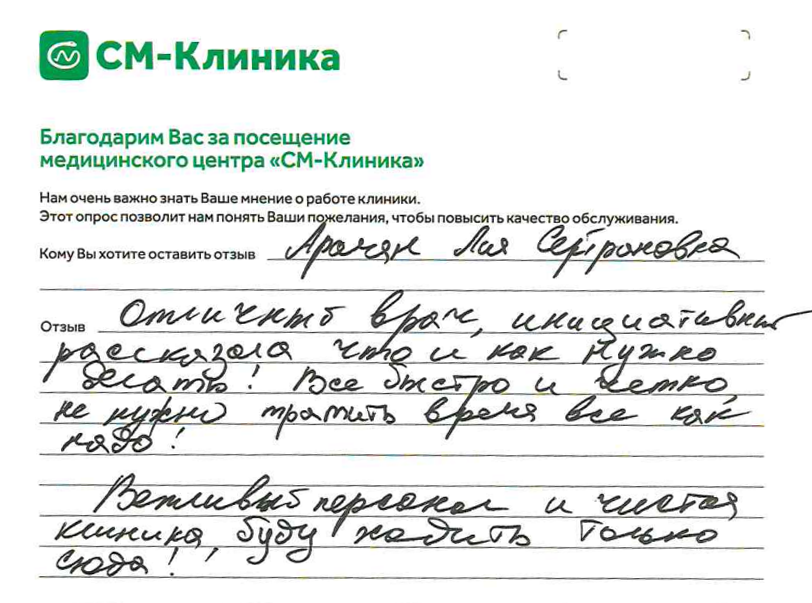 СМ-Клиника
Благодарим Вас за посещение
медицинского центра «СМ-Клиника»
Нам очень важно знать Ваше мнение о работе клиники.
Этот опрос позволит нам понять Ваши пожелания, чтобы повысить качество обслуживания.
Кому Вы хотите оставить отзыв Лия
Отзыв Отличный врач, инициативный
рассказала что и как нужно
делать! Все быстро и четко,
не нужно тратить время все как
надо!
Вежливый персонал и чистая
клиника, буду ходить только
сюда!